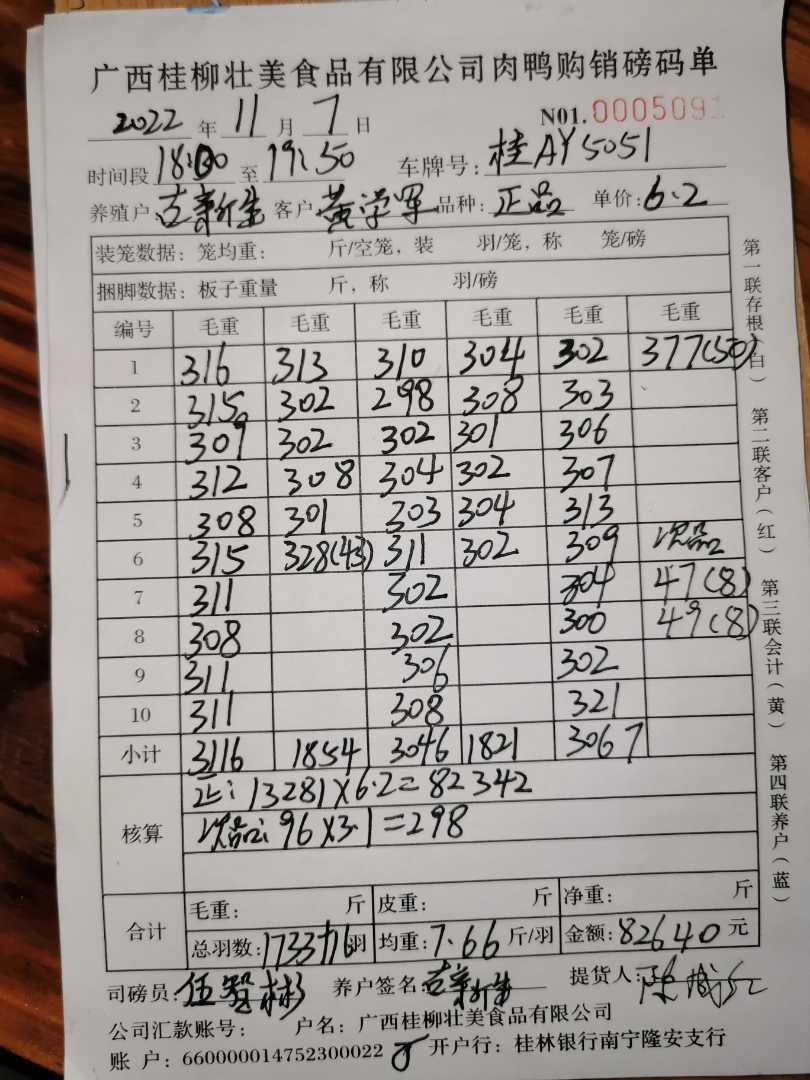 广西桂柳壮美食品有限公司肉鸭购销磅码单
2022 年 11 月 7 日 N01.000509
时间段 18:00 至 19:50 车牌号: 桂AY5051
养殖户: 客户: 黄学军 品种: 正品 单价: 6.2
装笼数据: 笼均重: 斤/空笼, 装 羽/笼, 称 笼/磅
捆脚数据: 板子重量 斤, 称 羽/磅
编号 毛重 毛重 毛重 毛重 毛重 毛重
1 316 313 310 304 302 377(50)
2 315 302 298 308 303
3 309 302 302 301 306
4 312 308 304 302 307
5 308 301 303 304 313
6 315 328(43) 311 302 309 次品
7 311 302 304 47(8)
8 308 302 300 49(8)
9 311 306 302
10 311 308 321
小计 3116 1854 3046 1821 3067
核算 正: 13281×6.2=82342
次品: 96×3.1=298
合计 毛重: 斤 皮重: 斤 净重: 斤
总羽数: 1733+16羽 均重: 7.66 斤/羽 金额: 82640 元
司磅员: 伍 彬 养户签名: 提货人:
公司汇款账号: 户名: 广西桂柳壮美食品有限公司
账 户: 660000014752300022 开户行: 桂林银行南宁隆安支行
第一联存根(白) 第二联客户(红) 第三联会计(黄) 第四联养户(蓝)